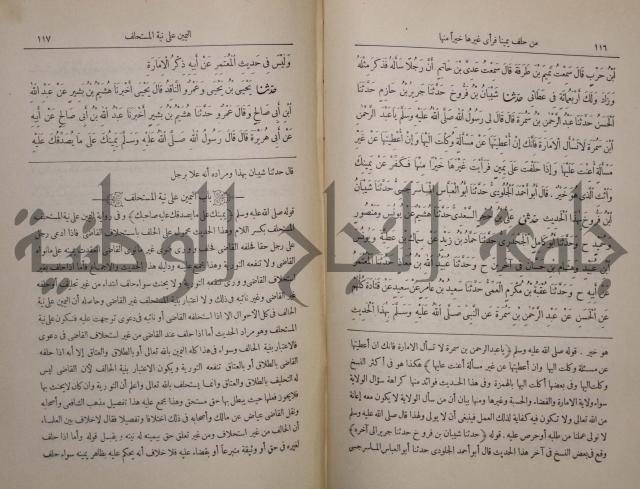 ١١٦
من حلف يمينا فرأى غيرها خيراً منها
ابْنُ حَرْبٍ قَالَ سَمِعْتُ تَمِيمَ بْنَ طَرَفَةَ قَالَ سَمِعْتُ عَدِيَّ بْنَ حَاتِمٍ أَنَّ رَجُلاً سَأَلَهُ فَذَكَرَ مِثْلَهُ
وَزَادَ وَلَكَ أَرْبَعُمِائَةٍ فِي عَطَائِي حَدَّثَنَا شَيْبَانُ بْنُ فَرُّوخَ حَدَّثَنَا جَرِيرُ بْنُ حَازِمٍ حَدَّثَنَا
الْحَسَنُ حَدَّثَنَا عَبْدُ الرَّحْمٰنِ بْنُ سَمُرَةَ قَالَ قَالَ لِي رَسُولُ اللهِ صَلَّى اللهُ عَلَيْهِ وَسَلَّمَ يَا عَبْدَ الرَّحْمٰنِ
ابْنَ سَمُرَةَ لَا تَسْأَلِ الْإِمَارَةَ فَإِنَّكَ إِنْ أُعْطِيتَهَا عَنْ مَسْأَلَةٍ وُكِلْتَ إِلَيْهَا وَإِنْ أُعْطِيتَهَا عَنْ غَيْرِ
مَسْأَلَةٍ أُعِنْتَ عَلَيْهَا وَإِذَا حَلَفْتَ عَلَى يَمِينٍ فَرَأَيْتَ غَيْرَهَا خَيْرًا مِنْهَا فَكَفِّرْ عَنْ يَمِينِكَ
وَائْتِ الَّذِي هُوَ خَيْرٌ . قَالَ أَبُو أَحْمَدَ الْجُلُودِيُّ حَدَّثَنَا أَبُو الْعَبَّاسِ الْمَاسَرْجَسِيُّ حَدَّثَنَا شَيْبَانُ
ابْنُ فَرُّوخَ بِهٰذَا الْحَدِيثِ حَدَّثَنِي عَلِيُّ بْنُ حُجْرٍ السَّعْدِيُّ حَدَّثَنَا هُشَيْمٌ عَنْ يُونُسَ وَمَنْصُورٍ
وَحُمَيْدٍ ح وَحَدَّثَنَا أَبُو كَامِلٍ الْجَحْدَرِيُّ حَدَّثَنَا حَمَّادُ بْنُ زَيْدٍ عَنْ سِمَاكِ بْنِ عَطِيَّةَ وَيُونُسَ
ابْنِ عُبَيْدٍ وَهِشَامِ بْنِ حَسَّانَ فِي آخَرِينَ ح وَحَدَّثَنَا عُبَيْدُ اللهِ بْنُ مُعَاذٍ حَدَّثَنَا الْمُعْتَمِرُ
عَنْ أَبِيهِ ح وَحَدَّثَنَا عُقْبَةُ بْنُ مُكْرَمٍ الْعَمِّيُّ حَدَّثَنَا سَعِيدُ بْنُ عَامِرٍ عَنْ سَعِيدٍ عَنْ قَتَادَةَ كُلُّهُمْ
عَنِ الْحَسَنِ عَنْ عَبْدِ الرَّحْمٰنِ بْنِ سَمُرَةَ عَنِ النَّبِيِّ صَلَّى اللهُ عَلَيْهِ وَسَلَّمَ بِهٰذَا الْحَدِيثِ
هو خير . قوله صلى الله عليه وسلم ﴿يا عبد الرحمن بن سمرة لا تسأل الامارة فانك ان أعطيتها
عن مسئلة وكلت اليها وان أعطيتها عن غير مسألة أعنت عليها﴾ هكذا هو فى أكثر النسخ
وكلت اليها وفى بعضها أكلت اليها بالهمزة وفى هذا الحديث فوائد منها كراهة سؤال الولاية
سواء ولاية الامارة والقضاء والحسبة وغيرها ومنها بيان أن من سأل الولاية لا يكون معه إعانة
من الله تعالى ولا تكون فيه كفاية لذلك العمل فينبغى أن لا يولى ولهذا قال صلى الله عليه وسلم
لا نولى عملنا من طلبه أو حرص عليه . قوله ﴿حدثنا شيبان بن فروخ حدثنا جرير الى آخره﴾
وقع فى بعض النسخ فى آخر هذا الحديث قال أبو أحمد الجلودى حدثنا أبو العباس الماسرجسى
اليمين على نية المستحلف
١١٧
وَلَيْسَ فِي حَدِيثِ الْمُعْتَمِرِ عَنْ أَبِيهِ ذِكْرُ الْإِمَارَةِ
حَدَّثَنَا يَحْيَى بْنُ يَحْيَى وَعَمْرٌو النَّاقِدُ قَالَ يَحْيَى أَخْبَرَنَا هُشَيْمُ بْنُ بَشِيرٍ عَنْ عَبْدِ اللهِ
ابْنِ أَبِي صَالِحٍ وَقَالَ عَمْرٌو حَدَّثَنَا هُشَيْمُ بْنُ بَشِيرٍ أَخْبَرَنَا عَبْدُ اللهِ بْنُ أَبِي صَالِحٍ عَنْ أَبِيهِ
عَنْ أَبِي هُرَيْرَةَ قَالَ قَالَ رَسُولُ اللهِ صَلَّى اللهُ عَلَيْهِ وَسَلَّمَ يَمِينُكَ عَلَى مَا يُصَدِّقُكَ عَلَيْهِ
قال حدثنا شيبان بهذا ومراده أنه علا برجل
باب اليمين على نية المستحلف
قوله صلى الله عليه وسلم ﴿يمينك على ما يصدقك عليه صاحبك﴾ وفى رواية اليمين على نية المستحلف
المستحلف بكسر اللام وهذا الحديث محمول على الحلف باستحلاف القاضى فاذا ادعى رجل
على رجل حقا فحلفه القاضى فحلف وورى فنوى غير ما نوى القاضى انعقدت يمينه على ما نواه
القاضى ولا تنفعه التورية وهذا مجمع عليه ودليله هذا الحديث والاجماع فأما اذا حلف بغير
استحلاف القاضى وورى تنفعه التورية ولا يحنث سواء حلف ابتداء من غير تحليف أو حلفه
غير القاضى وغير نائبه فى ذلك ولا اعتبار بنية المستحلف غير القاضى وحاصله أن اليمين على نية
الحالف فى كل الاحوال الا اذا استحلفه القاضى أو نائبه فى دعوى توجهت عليه فتكون على نية
المستحلف وهو مراد الحديث أما اذا حلف عند القاضى من غير استحلاف القاضى فى دعوى
فالاعتبار بنية الحالف وسواء فى هذا كله اليمين بالله تعالى أو بالطلاق والعتاق إلا أنه اذا حلفه
القاضى بالطلاق أو بالعتاق تنفعه التورية ويكون الاعتبار بنية الحالف لأن القاضى ليس
له التحليف بالطلاق والعتاق وانما يستحلف بالله تعالى واعلم أن التورية وان كان لا يحنث بها
فلا يجوز فعلها حيث يبطل بها حق مستحق وهذا مجمع عليه هذا تفصيل مذهب الشافعى وأصحابه
ونقل القاضى عياض عن مالك وأصحابه فى ذلك اختلافا وتفصيلا فقال لا خلاف بين العلماء
أن الحالف من غير استحلاف ومن غير تعلق حق بيمينه له نيته ويقبل قوله وأما اذا حلف
لغيره فى حق أو وثيقة متبرعا أو بقضاء عليه فلا خلاف أنه يحكم عليه بظاهر يمينه سواء حلف
جامعة النجاح الوطنية